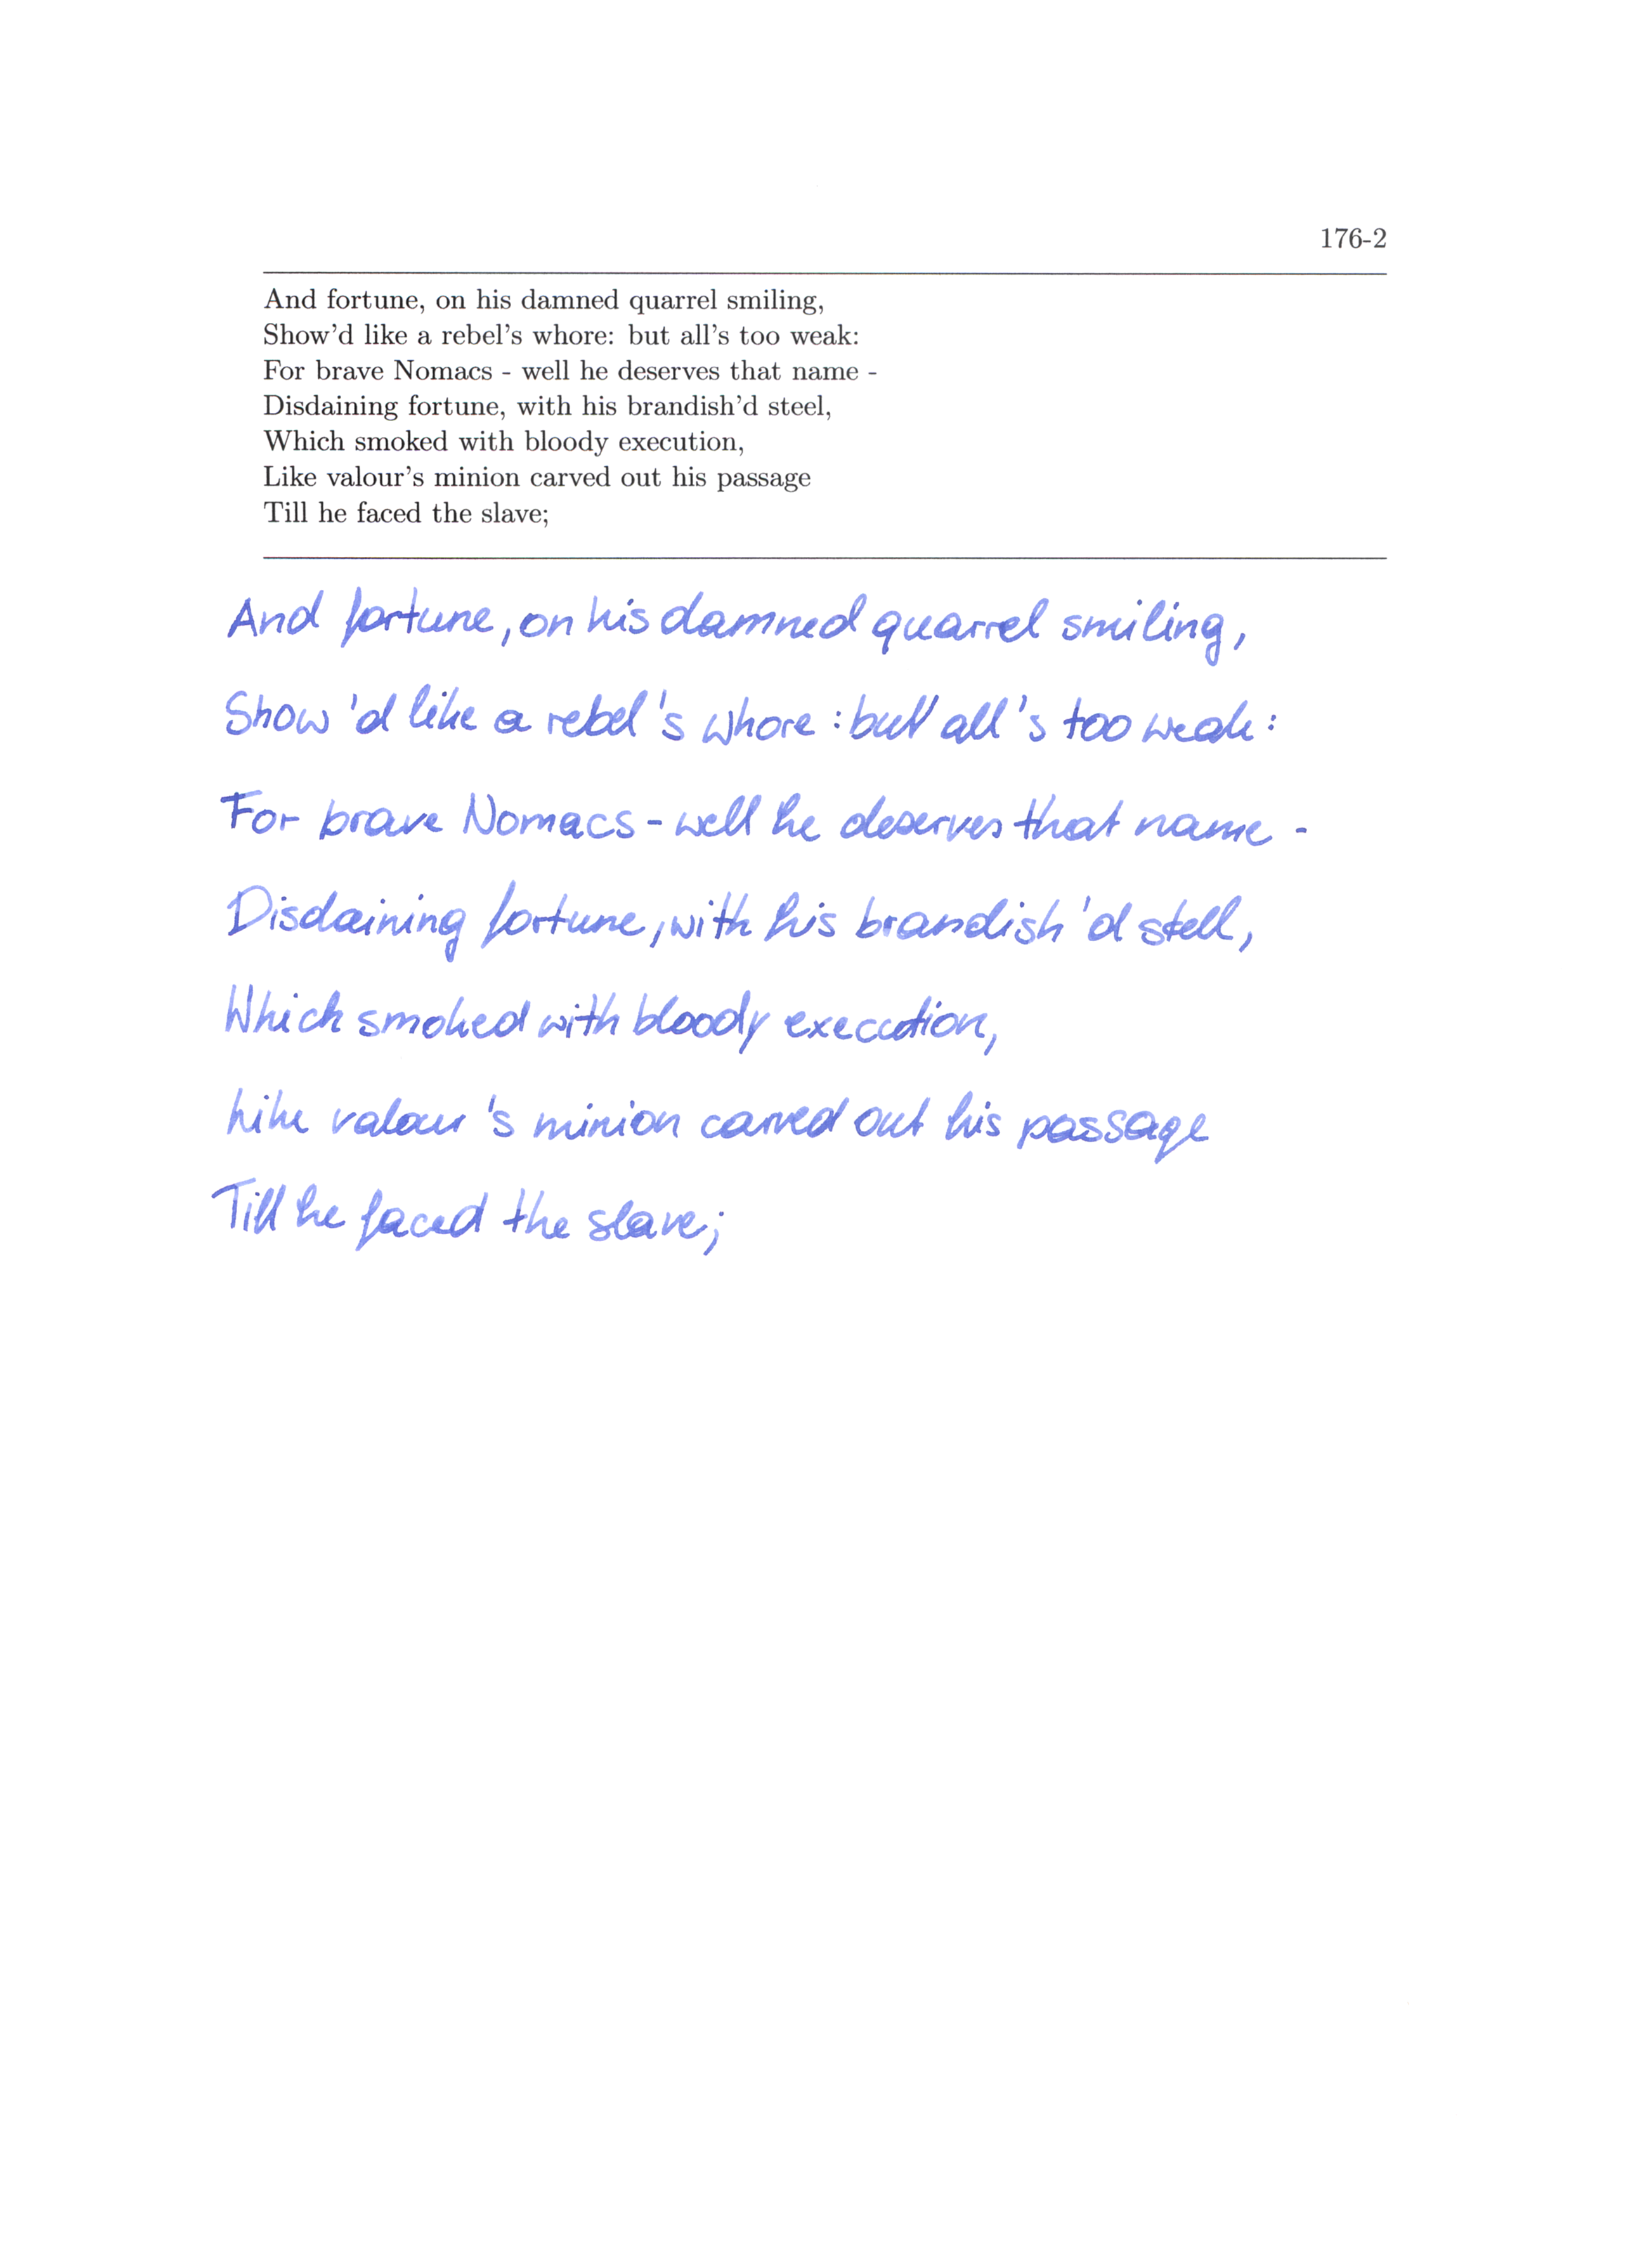 176-2
And fortune, on his damned quarrel smiling,
Show'd like a rebel's whore: but all's too weak:
For brave Nomacs - well he deserves that name -
Disdaining fortune, with his brandish'd steel,
Which smoked with bloody execution,
Like valour's minion carved out his passage
Till he faced the slave;
And fortune, on his damned quarrel smiling,
Show 'd like a rebel 's whore : but all 's too weak :
For brave Nomacs - well he deserves that name -
Disdaining fortune, with his brandish 'd stell,
Which smoked with bloody execution,
Like valour 's minion carved out his passage
Till he faced the slave;